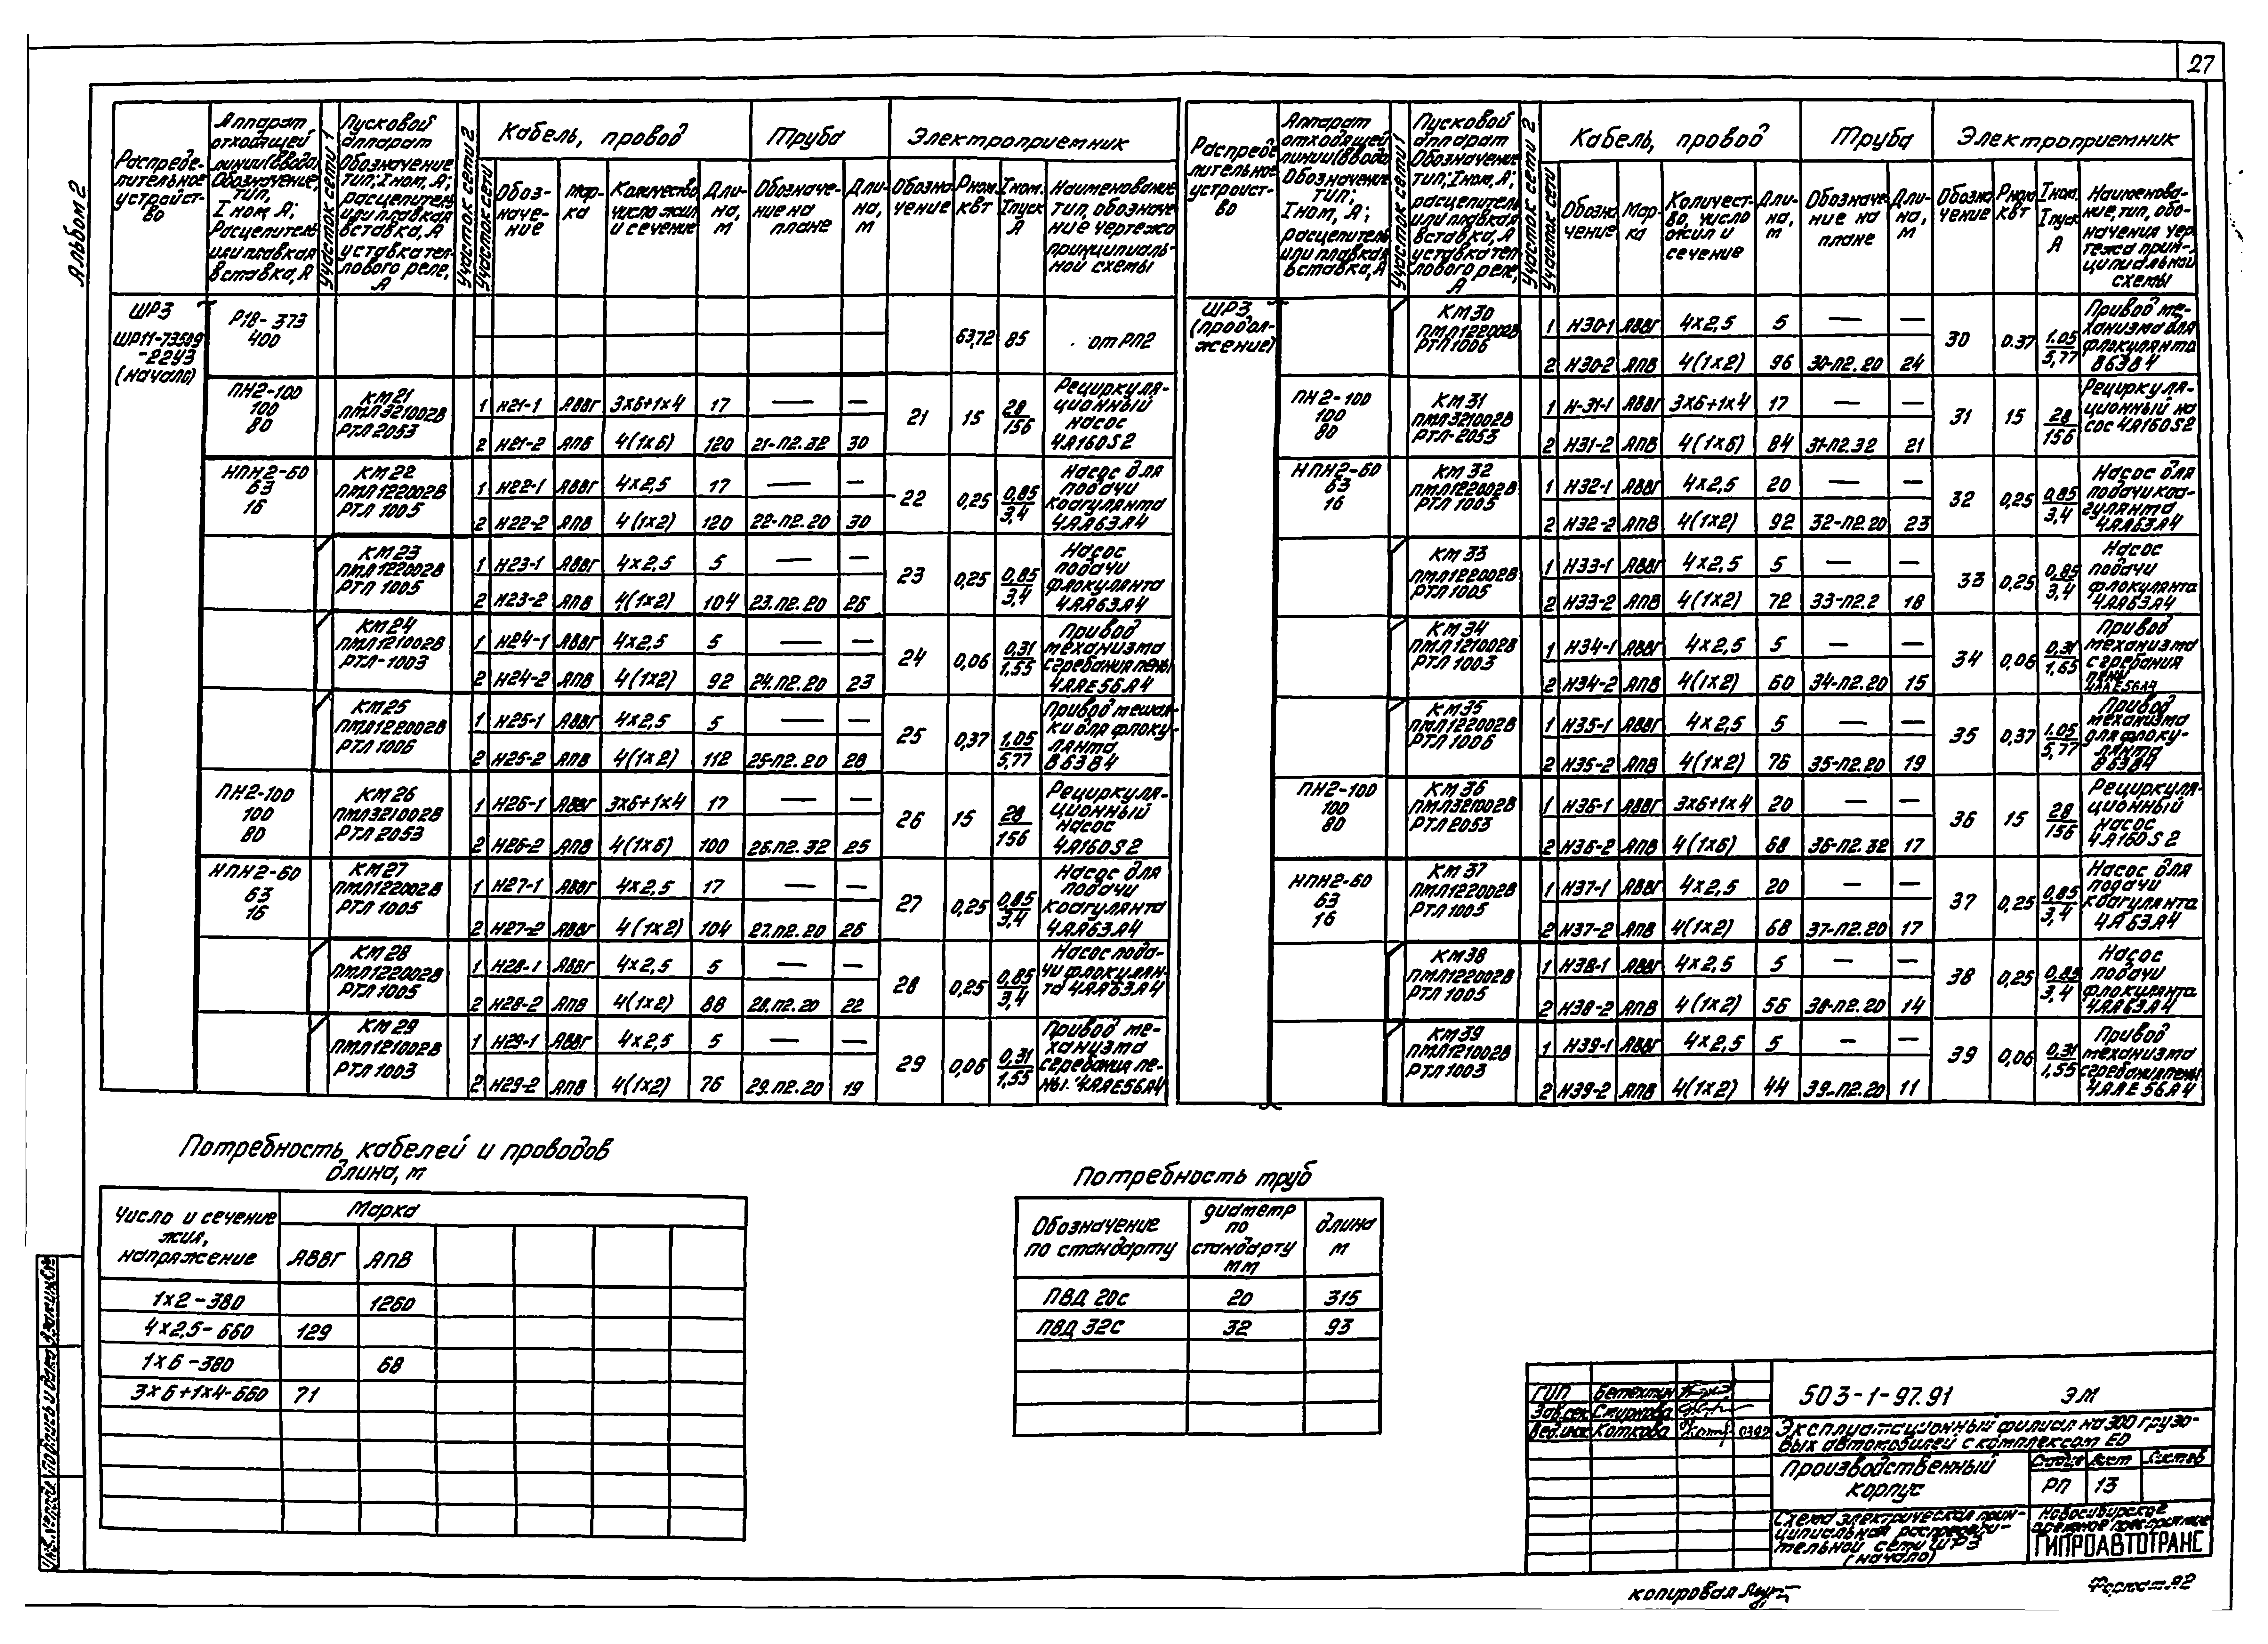 27
Альбом 2
Распреде-
лительное
устройст-
во
Аппарат
отходящей
линии (ввода)
Обозначение,
тип,
Iном, А;
Расцепитель
или плавкая
вставка, А
Участок сети 1
Пусковой
аппарат
Обозначение
тип; Iном, А;
расцепитель
или плавкая
вставка, А
уставка теп-
лового реле,
А
Участок сети 2
Кабель, провод
Труба
Электроприемник
Участок сети
Обоз-
наче-
ние
Мар-
ка
Количество
число жил
и сечение
Дли-
на,
м
Обозначе-
ние на
плане
Дли-
на,
м
Обозна-
чение
Рном.
кВт
Iном.
Iпуск
А
Наименование
тип, обозначе
ние чертежа
принципиаль-
ной схемы
ШР3
ШР11-73509
-22У3
(начало)
Р18-373
400
63,72 85 от РП2
ПН2-100
100
80
КМ21
ПМЛ321002В
РТЛ2053
1 Н21-1 АВВГ 3х6+1х4 17 — —
2 Н21-2 АПВ 4(1х6) 120 21-П2.32 30
21 15 28/156
Рециркуля-
ционный
насос
4А160S2
НПН2-60
63
16
КМ22
ПМЛ122002В
РТЛ 1005
1 Н22-1 АВВГ 4х2,5 17 — —
2 Н22-2 АПВ 4(1х2) 120 22-П2.20 30
22 0,25 0,85/3,4
Насос для
подачи
коагулянта
4АА63А4
КМ23
ПМЛ122002В
РТЛ 1005
1 Н23-1 АВВГ 4х2,5 5 — —
2 Н23-2 АПВ 4(1х2) 104 23.П2.20 26
23 0,25 0,85/3,4
Насос
подачи
флокулянта
4АА63А4
КМ24
ПМЛ121002В
РТЛ-1003
1 Н24-1 АВВГ 4х2,5 5 — —
2 Н24-2 АПВ 4(1х2) 92 24.П2.20 23
24 0,06 0,31/1,55
Привод
механизма
сгребания пены
4ААЕ56А4
КМ25
ПМЛ122002В
РТЛ 1006
1 Н25-1 АВВГ 4х2,5 5 — —
2 Н25-2 АПВ 4(1х2) 112 25-П2.20 28
25 0,37 1.05/5,77
Привод мешал-
ки для флоку-
лянта
В63В4
ПН2-100
100
80
КМ26
ПМЛ321002В
РТЛ 2053
1 Н26-1 АВВГ 3х6+1х4 17 — —
2 Н26-2 АПВ 4(1х6) 100 26.П2.32 25
26 15 28/156
Рециркуля-
ционный
насос
4А160S2
НПН2-60
63
16
КМ27
ПМЛ122002В
РТЛ 1005
1 Н27-1 АВВГ 4х2,5 17 — —
2 Н27-2 АВВГ 4(1х2) 104 27.П2.20 26
27 0,25 0,85/3,4
Насос для
подачи
коагулянта
4АА63А4
КМ28
ПМЛ122002В
РТЛ1005
1 Н28-1 АВВГ 4х2,5 5 — —
2 Н28-2 АПВ 4(1х2) 88 28.П2.20 22
28 0,25 0,85/3,4
Насос пода-
чи флокулян-
та 4АА63А4
КМ29
ПМЛ121002В
РТЛ 1003
1 Н29-1 АВВГ 4х2,5 5 — —
2 Н29-2 АПВ 4(1х2) 76 29.П2.20 19
29 0,06 0,31/1,55
Привод ме-
ханизма
сгребания пе-
ны. 4ААЕ56А4
Распреде
лительное
устройст-
во
Аппарат
отходящей
линии (ввода
Обозначение
тип;
Iном, А;
расцепитель
или плавкая
вставка, А
Участок сети 1
Пусковой
аппарат
Обозначение
тип; Iном, А;
расцепитель
или плавкая
вставка, А
уставка теп-
лового реле,
А
Участок сети 2
Кабель, провод
Труба
Электроприемник
Участок сети
Обозна
чение
Мар-
ка
Количест-
во, число
жил и
сечение
Дли-
на,
м
Обозначе-
ние на
плане
Дли-
на,
м
Обозна
чение
Рном
кВт
Iном,
Iпуск
А
Наименова-
ние, тип, обо-
начения чер
тежа прин-
ципиальной
схемы
ШР3
(продол-
жение)
КМ30
ПМЛ122002В
РТЛ1006
1 Н30-1 АВВГ 4х2,5 5 — —
2 Н30-2 АПВ 4(1х2) 96 30-П2.20 24
30 0.37 1.05/5,77
Привод ме-
ханизма для
флокулянта
В63В4
ПН2-100
100
80
КМ31
ПМЛ321002В
РТЛ-2053
1 Н-31-1 АВВГ 3х6+1х4 17 — —
2 Н31-2 АПВ 4(1х6) 84 31-П2.32 21
31 15 28/156
Рециркуля-
ционный на
сос 4А160S2
НПН2-60
63
16
КМ32
ПМЛ122002В
РТЛ 1005
1 Н32-1 АВВГ 4х2,5 20 — —
2 Н32-2 АПВ 4(1х2) 92 32-П2.20 23
32 0,25 0,85/3,4
Насос для
подачи коа-
гулянта
4АА63А4
КМ33
ПМЛ122002В
РТЛ1005
1 Н33-1 АВВГ 4х2,5 5 — —
2 Н33-2 АПВ 4(1х2) 72 33-П2.2 18
33 0,25 0,85/3,4
Насос
подачи
флокулянта
4АА63А4
КМ34
ПМЛ121002В
РТЛ 1003
1 Н34-1 АВВГ 4х2,5 5 — —
2 Н34-2 АПВ 4(1х2) 60 34-П2.20 15
34 0,06 0,31/1,65
Привод
механизма
сгребания
пены
4ААЕ56А4
КМ35
ПМЛ122002В
РТЛ 1006
1 Н35-1 АВВГ 4х2,5 5 — —
2 Н35-2 АПВ 4(1х2) 76 35-П2.20 19
35 0,37 1.05/5,77
Привод
механизма
для флоку-
лянта
В63В4
ПН2-100
100
80
КМ36
ПМЛ321002В
РТЛ2053
1 Н36-1 АВВГ 3х6+1х4 20 — —
2 Н36-2 АПВ 4(1х6) 68 36-П2.32 17
36 15 28/156
Рециркуля-
ционный
насос
4А160S2
НПН2-60
63
16
КМ37
ПМЛ122002В
РТЛ 1005
1 Н37-1 АВВГ 4х2,5 20 — —
2 Н37-2 АПВ 4(1х2) 68 37-П2.20 17
37 0,25 0,85/3,4
Насос для
подачи
коагулянта
4А63А4
КМ38
ПМЛ122002В
РТЛ 1005
1 Н38-1 АВВГ 4х2,5 5 — —
2 Н38-2 АПВ 4(1х2) 56 38-П2.20 14
38 0,25 0,85/3,4
Насос
подачи
флокулянта
4АА63А4
КМ39
ПМЛ121002В
РТЛ 1003
1 Н39-1 АВВГ 4х2,5 5 — —
2 Н39-2 АПВ 4(1х2) 44 39-П2.20 11
39 0,06 0,31/1,55
Привод
механизма
сгребания пены
4ААЕ56А4
Потребность кабелей и проводов
длина, м
Число и сечение
жил,
напряжение
Марка
АВВГ АПВ
1х2-380 1260
4х2,5-660 129
1х6-380 68
3х6+1х4-660 71
Потребность труб
Обозначение
по стандарту
диаметр
по
стандарту
мм
длина
м
ПВД 20с 20 315
ПВД 32с 32 93
ГИП Бетехтин
Зав.сек Смирнова
Вед.инж Коткова 0392
503-1-97.91 ЭМ
Эксплуатационный филиал на 300 грузо-
вых автомобилей с комплексом ЕО
Производственный
корпус
Стадия Лист Листов
РП 13
Схема электрическая прин-
ципиальная распредели-
тельной сети ШР3
(начало)
Новосибирское
ГИПРОАВТОТРАНС
копировал
Формат А2
Инв.№ подл. Подпись и дата Взам.инв.№